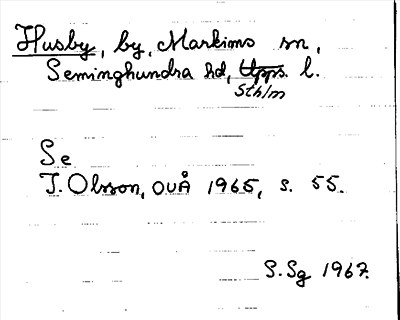 Husby, by, Markims sn,
Seminghundra hd, Upps. l.
Sthlm
Se
I. Olsson, OUÅ 1965, s. 55.
S.Sg 1967.